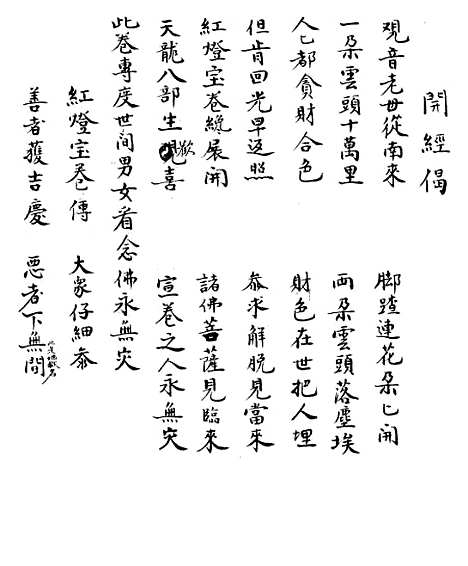 開經偈
觀音老母從南來　脚踏連花朵匕開
一朵雲頭十萬里　両朵雲頭落塵埃
人匕都貪財合色　財色在世把人埋
但肯回光早返照　叅求解脫見當來
紅燈宝卷纔展開　諸佛菩薩見臨來
天龍八部生歡喜　宣卷之人永無灾
此卷專度世间男女看念佛永無灾
紅燈宝卷傳　大衆仔細叅
善者獲吉慶　悪者下無間